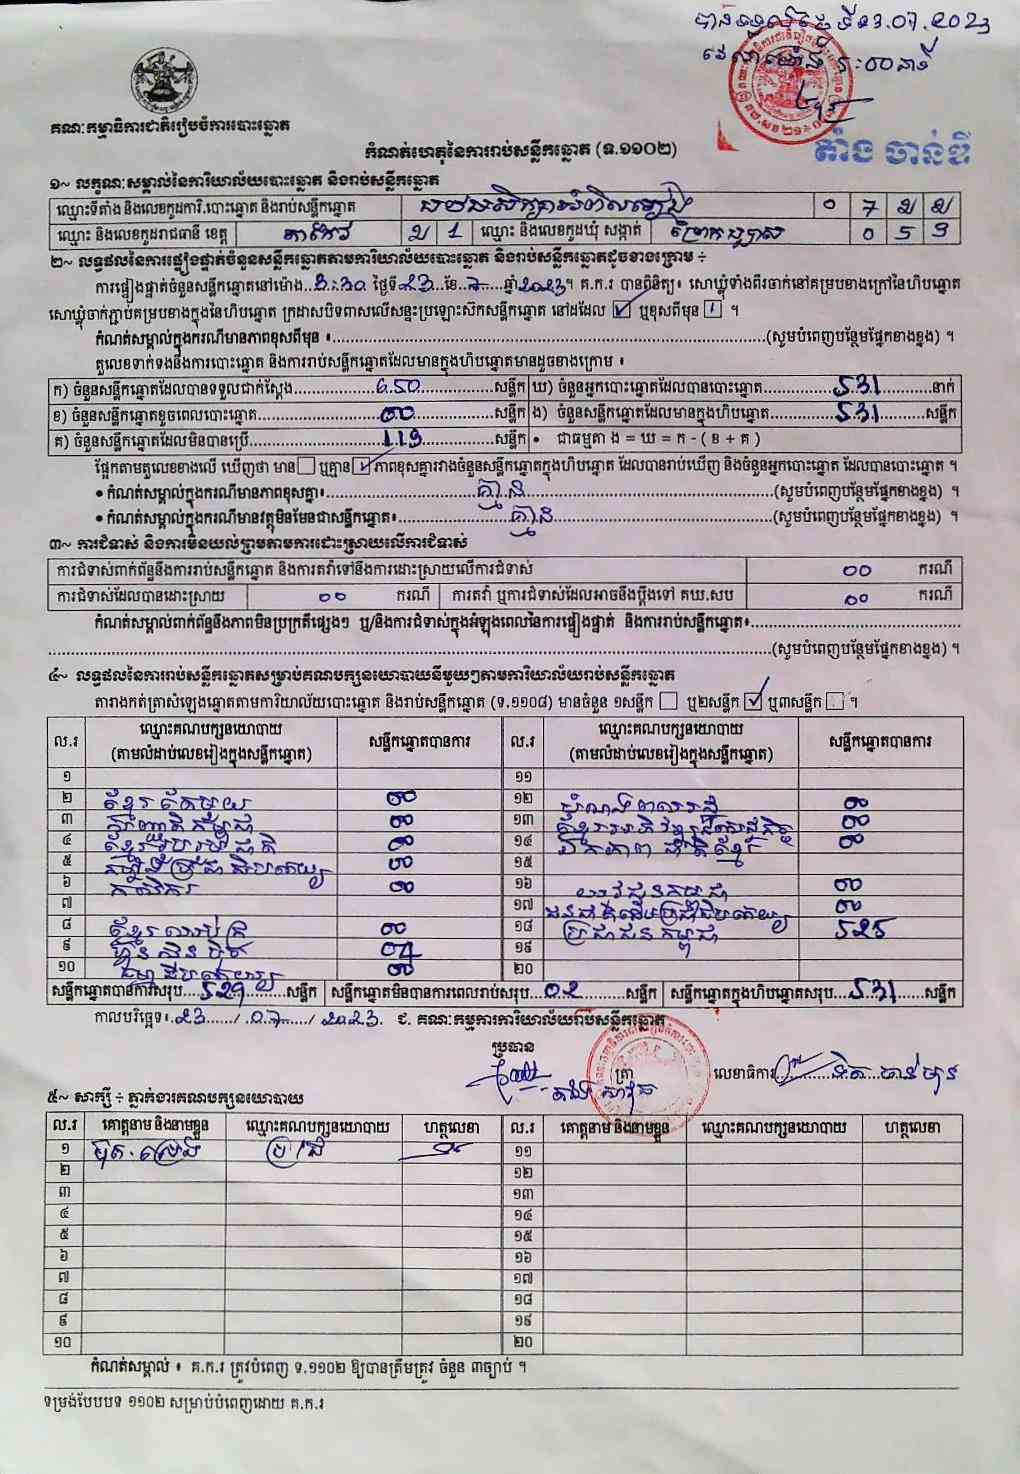 គណៈកម្មាធិការជាតិរៀបចំការបោះឆ្នោត
កំណត់ហេតុនៃការរាប់សន្លឹកឆ្នោត (ទ.១១០២)
តាំង ចាន់ឌី
១~ លក្ខណៈសម្គាល់នៃការិយាល័យបោះឆ្នោត និងរាប់សន្លឹកឆ្នោត
ឈ្មោះទីតាំង និងលេខកូដការិ.បោះឆ្នោត និងរាប់សន្លឹកឆ្នោត
ឈ្មោះ និងលេខកូដរាជធានី ខេត្ត តាកែវ ២ 1 ឈ្មោះ និងលេខកូដឃុំ សង្កាត់
២~ លទ្ធផលនៃការផ្ទៀងផ្ទាត់ចំនួនសន្លឹកឆ្នោតតាមការិយាល័យបោះឆ្នោត និងរាប់សន្លឹកឆ្នោតដូចខាងក្រោម ÷
ការផ្ទៀងផ្ទាត់ចំនួនសន្លឹកឆ្នោតនៅម៉ោង..3:30 ថ្ងៃទី..23..ខែ..7..ឆ្នាំ2023។ គ.ក.រ បានពិនិត្យ៖ សោឃ្លុំទាំងពីរចាក់នៅគម្របខាងក្រៅនៃហិបឆ្នោត
សោឃ្លុំចាក់ភ្ជាប់គម្របខាងក្នុងនៃហិបឆ្នោត ក្រដាសបិទពាសលើសន្ទះប្រឡោះស៊កសន្លឹកឆ្នោត នៅដដែល ☑ ឬខុសពីមុន ។
កំណត់សម្គាល់ក្នុងករណីមានភាពខុសពីមុន ៖.....(សូមបំពេញបន្ថែមផ្នែកខាងខ្នង) ។
តួលេខទាក់ទងនឹងការបោះឆ្នោត និងការរាប់សន្លឹកឆ្នោតដែលមានក្នុងហិបឆ្នោតមានដូចខាងក្រោម ៖
ក) ចំនួនសន្លឹកឆ្នោតដែលបានទទួលជាក់ស្តែង.....650.....សន្លឹក ឃ) ចំនួនអ្នកបោះឆ្នោតដែលបានបោះឆ្នោត.....531.....នាក់
ខ) ចំនួនសន្លឹកឆ្នោតខូចពេលបោះឆ្នោត.....00.....សន្លឹក ង) ចំនួនសន្លឹកឆ្នោតដែលមានក្នុងហិបឆ្នោត.....531.....សន្លឹក
គ) ចំនួនសន្លឹកឆ្នោតដែលមិនបានប្រើ.....119.....សន្លឹក • ជាធម្មតា ង = ឃ = ក - ( ខ + គ )
ផ្អែកតាមតួលេខខាងលើ ឃើញថា មាន☐ ឬគ្មាន☑ ភាពខុសគ្នារវាងចំនួនសន្លឹកឆ្នោតក្នុងហិបឆ្នោត ដែលបានរាប់ឃើញ និងចំនួនអ្នកបោះឆ្នោត ដែលបានបោះឆ្នោត ។
• កំណត់សម្គាល់ក្នុងករណីមានភាពខុសគ្នា៖.....គ្មាន.....(សូមបំពេញបន្ថែមផ្នែកខាងខ្នង) ។
• កំណត់សម្គាល់ក្នុងករណីមានវត្ថុមិនមែនជាសន្លឹកឆ្នោត៖.....គ្មាន.....(សូមបំពេញបន្ថែមផ្នែកខាងខ្នង) ។
៣~ ការជំទាស់ និងការមិនយល់ព្រមតាមការដោះស្រាយលើការជំទាស់
ការជំទាស់ពាក់ព័ន្ធនឹងការរាប់សន្លឹកឆ្នោត និងការតវ៉ាទៅនឹងការដោះស្រាយលើការជំទាស់ 00 ករណី
ការជំទាស់ដែលបានដោះស្រាយ 00 ករណី ការតវ៉ា ឬការជំទាស់ដែលអាចនឹងប្តឹងទៅ គឃ.សប 00 ករណី
កំណត់សម្គាល់ពាក់ព័ន្ធនឹងភាពមិនប្រក្រតីផ្សេងៗ ឬ/និងការជំទាស់ក្នុងអំឡុងពេលនៃការផ្ទៀងផ្ទាត់ និងការរាប់សន្លឹកឆ្នោត៖.....
.....(សូមបំពេញបន្ថែមផ្នែកខាងខ្នង) ។
៤~ លទ្ធផលនៃការរាប់សន្លឹកឆ្នោតសម្រាប់គណបក្សនយោបាយនីមួយៗតាមការិយាល័យរាប់សន្លឹកឆ្នោត
តារាងកត់ត្រាសំឡេងឆ្នោតតាមការិយាល័យបោះឆ្នោត និងរាប់សន្លឹកឆ្នោត (ទ.១១០៨) មានចំនួន ១សន្លឹក ☐ ឬ២សន្លឹក ☑ ឬ៣សន្លឹក ☐ ។
ល.រ ឈ្មោះគណបក្សនយោបាយ (តាមលំដាប់លេខរៀងក្នុងសន្លឹកឆ្នោត) សន្លឹកឆ្នោតបានការ ល.រ ឈ្មោះគណបក្សនយោបាយ (តាមលំដាប់លេខរៀងក្នុងសន្លឹកឆ្នោត) សន្លឹកឆ្នោតបានការ
១ ១១
២ ខ្មែរតែមួយ 00 ១២ 00
៣ 00 ១៣ 00
៤ 00 ១៤ ឯកភាពជាតិខ្មែរ 00
៥ 00 ១៥
៦ កសិករ 00 ១៦ យុវជនកម្ពុជា 00
៧ ១៧ 00
៨ 00 ១៨ ប្រជាជនកម្ពុជា 525
៩ ហ្វ៊ុនស៊ិនប៉ិច 04 ១៩
១០ 00 ២០
សន្លឹកឆ្នោតបានការសរុប...529...សន្លឹក សន្លឹកឆ្នោតមិនបានការពេលរាប់សរុប...02...សន្លឹក សន្លឹកឆ្នោតក្នុងហិបឆ្នោតសរុប...531...សន្លឹក
កាលបរិច្ឆេទ៖..23../..07../..2023. ជ. គណៈកម្មការការិយាល័យរាប់សន្លឹកឆ្នោត
ប្រធាន
ត្រា
លេខាធិការ
៥~ សាក្សី ÷ ភ្នាក់ងារគណបក្សនយោបាយ
ល.រ គោត្តនាម និងនាមខ្លួន ឈ្មោះគណបក្សនយោបាយ ហត្ថលេខា ល.រ គោត្តនាម និងនាមខ្លួន ឈ្មោះគណបក្សនយោបាយ ហត្ថលេខា
១ ១១
២ ១២
៣ ១៣
៤ ១៤
៥ ១៥
៦ ១៦
៧ ១៧
៨ ១៨
៩ ១៩
១០ ២០
កំណត់សម្គាល់ ៖ គ.ក.រ ត្រូវបំពេញ ទ.១១០២ ឱ្យបានត្រឹមត្រូវ ចំនួន ៣ច្បាប់ ។
ទម្រង់បែបបទ ១១០២ សម្រាប់បំពេញដោយ គ.ក.រ